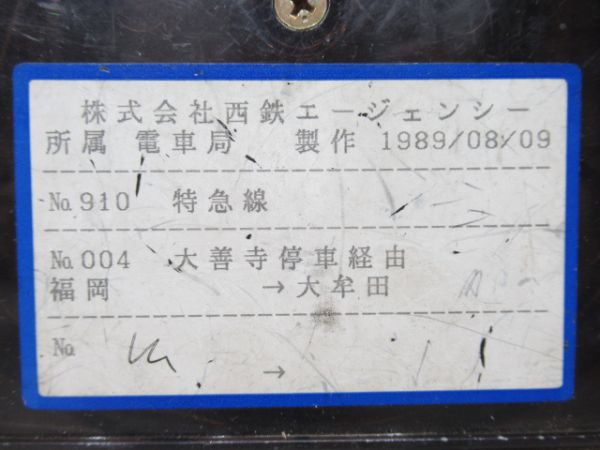 株式会社西鉄エージェンシー
所属 電車局 製作 1989/08/09
No.910 特急線
No.004 大善寺停車経由
福岡 → 大牟田
No.
→